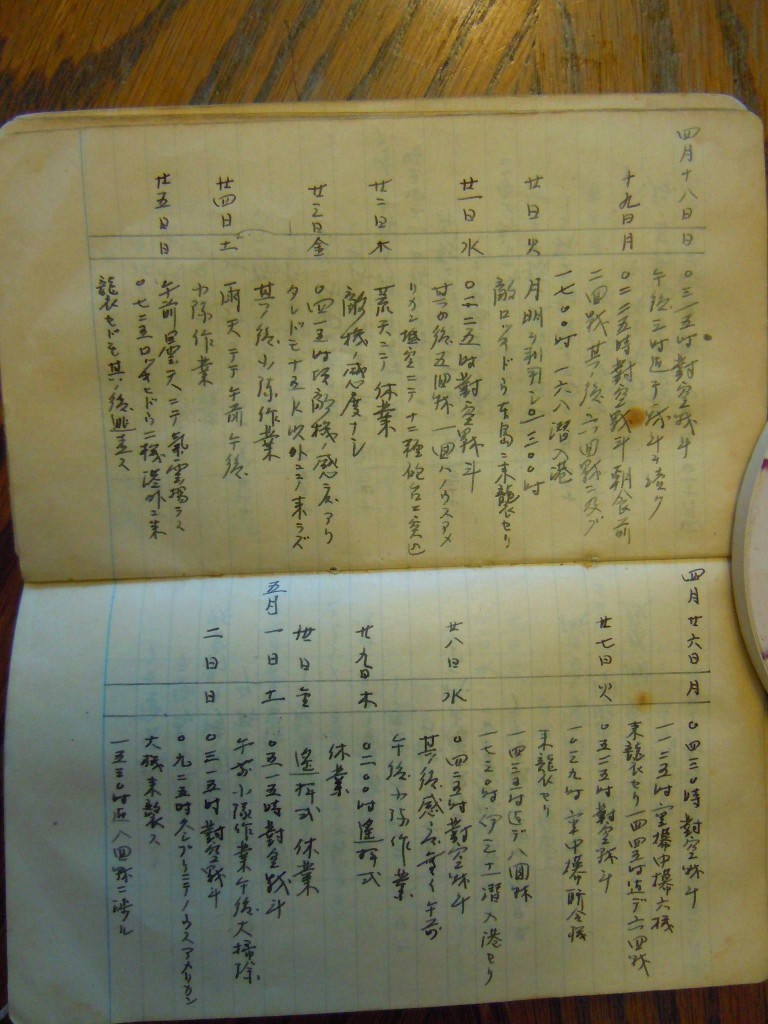 四月十八日 日
〇三一五時對空戦斗
午後三時迄デ戦斗ヲ續ク
十九日 月
〇二二五時對空戦斗朝食前
二四戦其ノ後六回戦ニ及ブ
一七〇〇時 一六八潜入港
廿日 火
月明ヲ利用シ〇三〇〇時
敵ロッキード 本島ニ来襲セリ
廿一日 水
〇二二五時對空戦斗
其ノ後五回戦 一回ハノウスアメ
リカン 低空ニテ十二糎砲台ニ突込
廿二日 木
荒天ニテ休業
敵機ノ感度ナシ
廿三日 金
〇四一五時頃敵機ノ感度アリ
タレドモ十五K以外ニテ来ラズ
其ノ後小隊作業
廿四日 土
雨天ニテ午前午後
小隊作業
廿五日 日
午前曇天ニテ
〇七二五ロッキード二機港外ニ来
襲セドモ其ノ後逃走ス
四月廿六日 月
〇四三〇時對空戦斗
一一二五時 六機
来襲セリ一四四五時迄デ六回戦
廿七日 火
〇五二五時對空戦斗
一〇二九時
来襲セリ
一四三五時迄デ八回戦
一七三〇時伊三十一潜入港セリ
廿八日 水
〇四二五時對空戦斗
其ノ後感度無ク午前
午後小隊作業
廿九日 木
〇二〇〇時遙拝式
休業
卅日 金
遙拝式 休業
五月一日 土
〇五一五時對空戦斗
午前小隊作業午後大掃除
二日 日
〇三一五時對空戦斗
〇九二五時 ノウスアメリカン
大機来襲ス
一五三〇時迄八回戦ニ渉ル